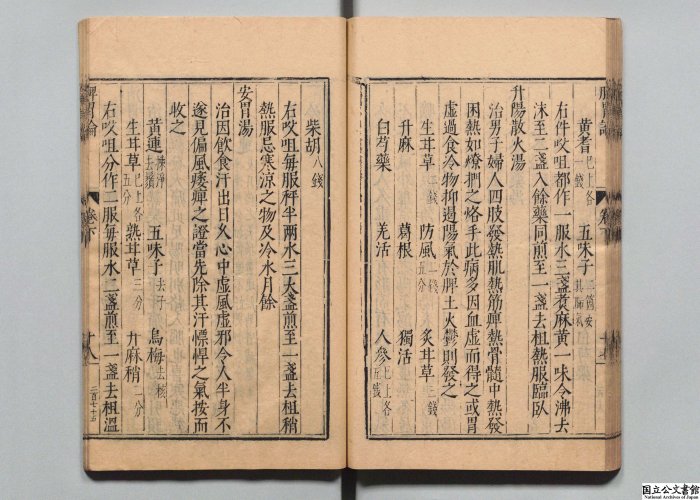 黄耆已上各一錢　五味子二箇安其肺氣
右件㕮咀都作一服水三盞煮麻黄一味令沸去
沫至二盞入餘藥同煎至一盞去柤熱服臨臥
升陽散火湯
治男子婦人四肢發熱肌熱筋痺熱骨髓中熱發
困熱如燎捫之烙手此病多因血虛而得之或胃
虛過食冷物抑遏陽氣於脾土火鬱則發之
生甘草二錢　防風二錢五分　炙甘草三錢
升麻　葛根　獨活
白芍藥　羌活　人參已上各五錢
柴胡八錢
右㕮咀每服秤半兩水三大盞煎至一盞去柤稍
熱服忌寒涼之物及冷水月餘
安胃湯
治因飲食汗出日久心中虛風虛邪令人半身不
遂見偏風痿痺之證當先除其汗慓悍之氣按而
收之
黄連揀淨去鬚　五味子去子　烏梅去核
生甘草已上各五分　熟甘草三分　升麻梢二分
右㕮咀分作二服每服水二盞煎至一盞去柤溫
脾胃論
卷下
二百七十五
国立公文書館
National Archives of Japan